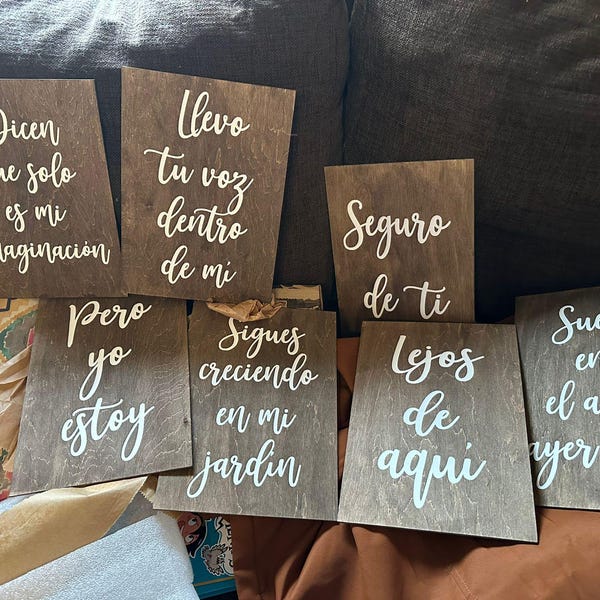 Dicen
que solo
es mi
imaginación
Llevo
tu voz
dentro
de mí
Seguro
de ti
Pero
yo
estoy
Sigues
creciendo
en mi
jardín
Lejos
de
aquí
en
el
ayer